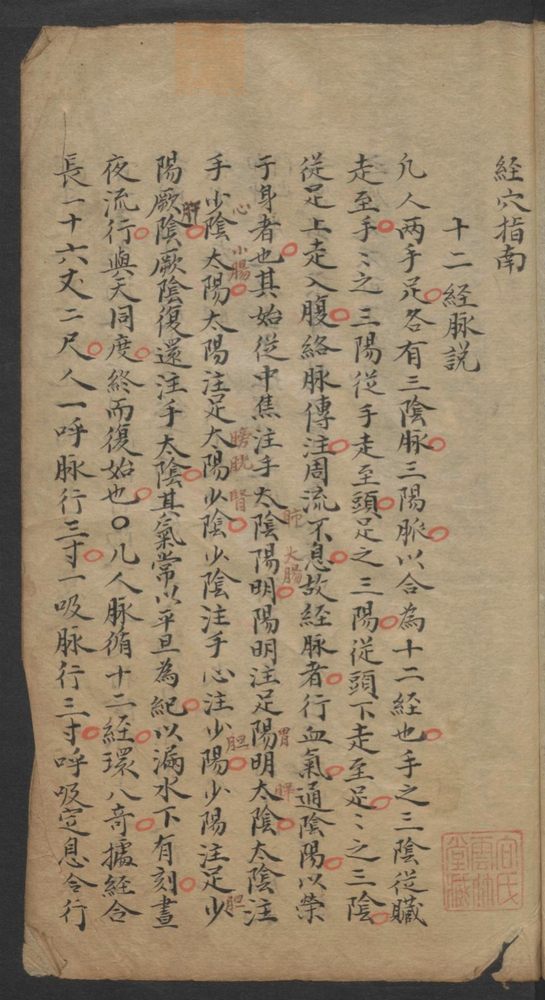 経穴指南
十二経脉説
凢人两手足各有三陰脉三陽脉以合為十二経也手之三陰従臟
走至手〻之三陽従手走至頭足之三陽従頭下走至足〻之三陰
従足上走入腹絡脉傳注周流不息故経脉者行血氣通陰陽以榮
于身者也其始従中焦注手太陰陽明陽明注足陽明太陰太陰注
手少陰太陽太陽注足太陽少陰少陰注手心注少陽少陽注足少
陽厥陰厥陰復還注手太陰其氣常以平旦為紀以漏水下有刻晝
夜流行與天同度終而復始也〇凢人脉循十二経環八竒據経合
長一十六丈二尺人一呼脉行三寸一吸脉行三寸呼吸定息合行
肺
大腸
胃
脾
心
小腸
膀胱
腎
胆
胆
肝